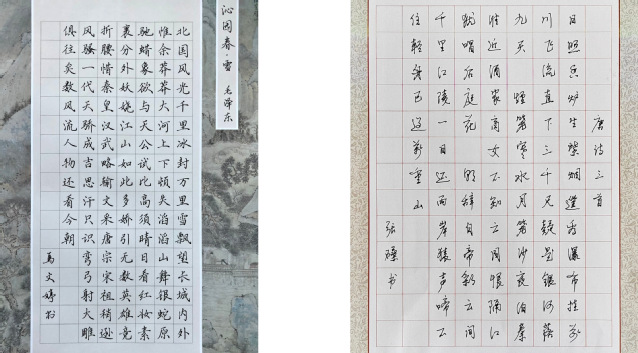 沁园春 雪 毛泽东
北国风光千里冰封万里雪飘望长城内外
惟余莽莽大河上下顿失滔滔山舞银蛇原
驰蜡象欲与天公试比高须晴日看红妆素
裹分外妖娆江山如此多娇引无数英雄竞
折腰惜秦皇汉武略输文采唐宗宋祖稍逊
风骚一代天骄成吉思汗只识弯弓射大雕
俱往矣数风流人物还看今朝
马文婷书
唐诗三首
日照香炉生紫烟遥看瀑布挂前
川飞流直下三千尺疑是银河落
九天 烟笼寒水月笼沙夜泊秦
淮近酒家商女不知亡国恨隔江
犹唱后庭花 朝辞白帝彩云间
千里江陵一日还两岸猿声啼不
住轻舟已过万重山
张 书